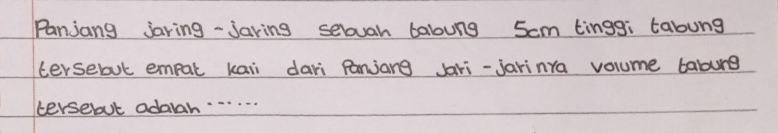 Panjang jaring-jaring sebuah tabung 5cm tinggi tabung
tersebut empat kali dari Panjang Jari-jarinya volume tabung
tersebut adalah ......